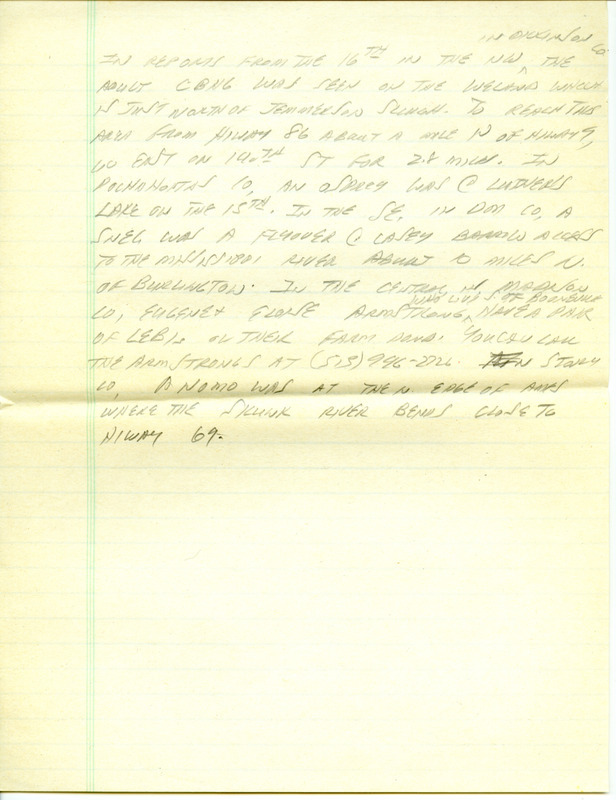 IN DICKINSON CO.
IN REPORTS FROM THE 16TH IN THE NW, THE
ADULT WAS SEEN ON THE WHICH
IS JUST NORTH OF JEMMERSON SLOUGH. TO REACH THIS
AREA FROM HIWAY 86 ABOUT A MILE N OF HIWAY 9,
GO EAST ON 140TH ST FOR 2.8 MILES. IN
POCAHONTAS CO, AN OSPREY WAS @ LITTLE
LAKE ON THE 15TH. IN THE SE, IN CO, A
SNEG WAS A FLYOVER @ CASEY ACCESS
TO THE MISSISSIPPI RIVER ABOUT 10 MILES N.
OF BURLINGTON. IN THE CENTRAL IN
WHO LIVE S OF
CO, EUGENE & ELOISE ARMSTRONG, HAVE A PAIR
OF LEBIS ON THEIR FARM POND. YOU CAN CALL
THE ARMSTRONGS AT (515)996-2126. IN STORY
CO, A NOMO WAS AT THE N EDGE OF AMES
WHERE THE SKUNK RIVER BENDS CLOSE TO
HIWAY 69.